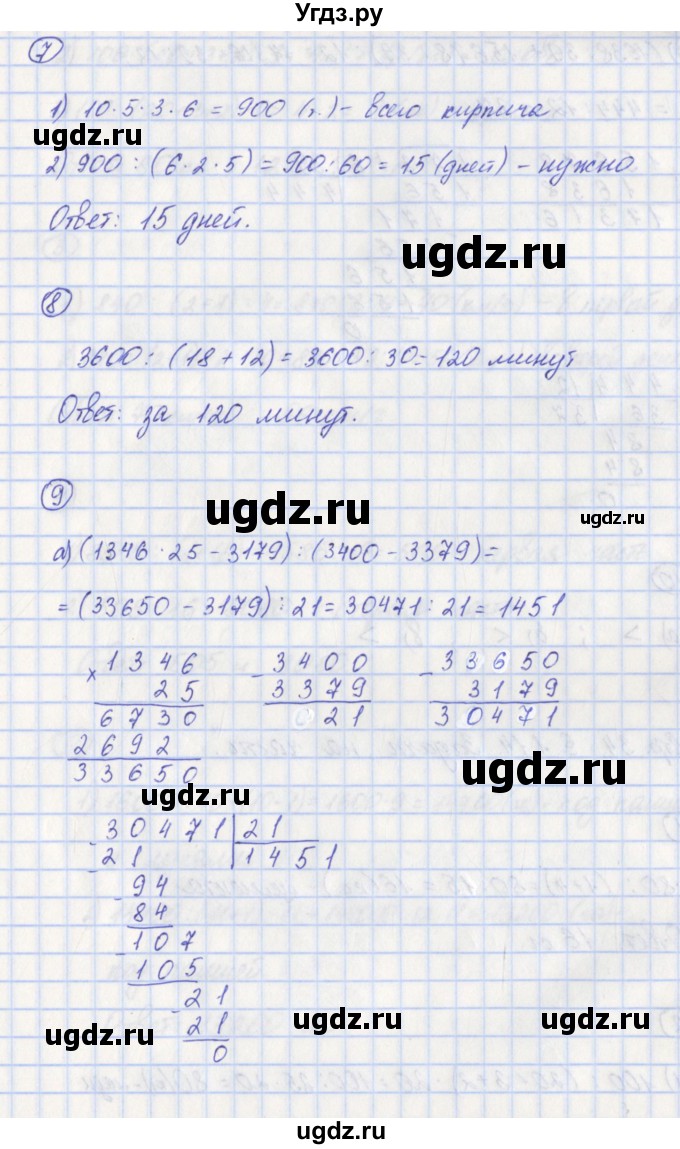 Угдз.ру
7
1) 10·5·3·6 = 900 (т.) – всего кирпича
ugdz.ru
2) 900 : (6·2·5) = 900:60 = 15 (дней) – нужно
Ответ: 15 дней.
ugdz.ru
8
3600 : (18+12) = 3600 : 30 = 120 минут
Ответ: за 120 минут.
9
ugdz.ru
ugdz.ru
а) (1346·25 – 3179) : (3400 – 3379) =
= (33650 – 3179) : 21 = 30471 : 21 = 1451
× 1346 – 3400 – 33650
25 3379 3179
6730 21 30471
2692
33650
ugdz.ru
ugdz.ru
– 30471 | 21
21 1451
– 94
84
– 107
105
– 21
21
0
ugdz.ru
ugdz.ru
ugdz.ru
ugdz.ru